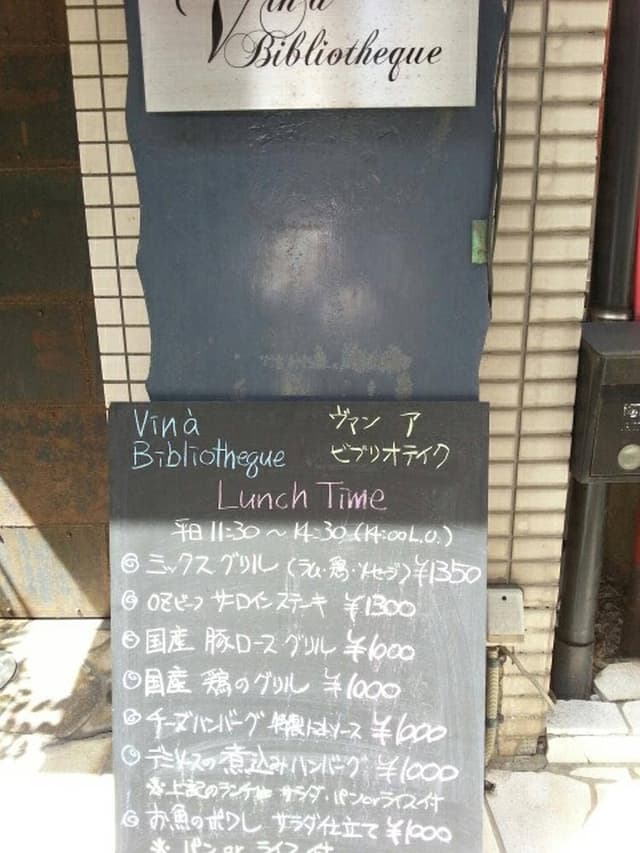 Vin à
Bibliotheque
Vin à ヴァン ア
Bibliotheque ビブリオテイク
Lunch Time
平日 11:30 〜 14:30 (14:00 L.O.)
◎ ミックスグリル (ラム・鶏・ソーセージ) ¥1350
◎ OZビーフ サーロインステーキ ¥1300
◎ 国産 豚ロースグリル ¥1000
◎ 国産 鶏のグリル ¥1000
◎ チーズハンバーグ 特製トマトソース ¥1000
◎ デミソースの煮込みハンバーグ ¥1000
※上記のランチは サラダ・パンorライス付
◎ お魚のポワレ サラダ仕立て ¥1000
※ パン or ライス付